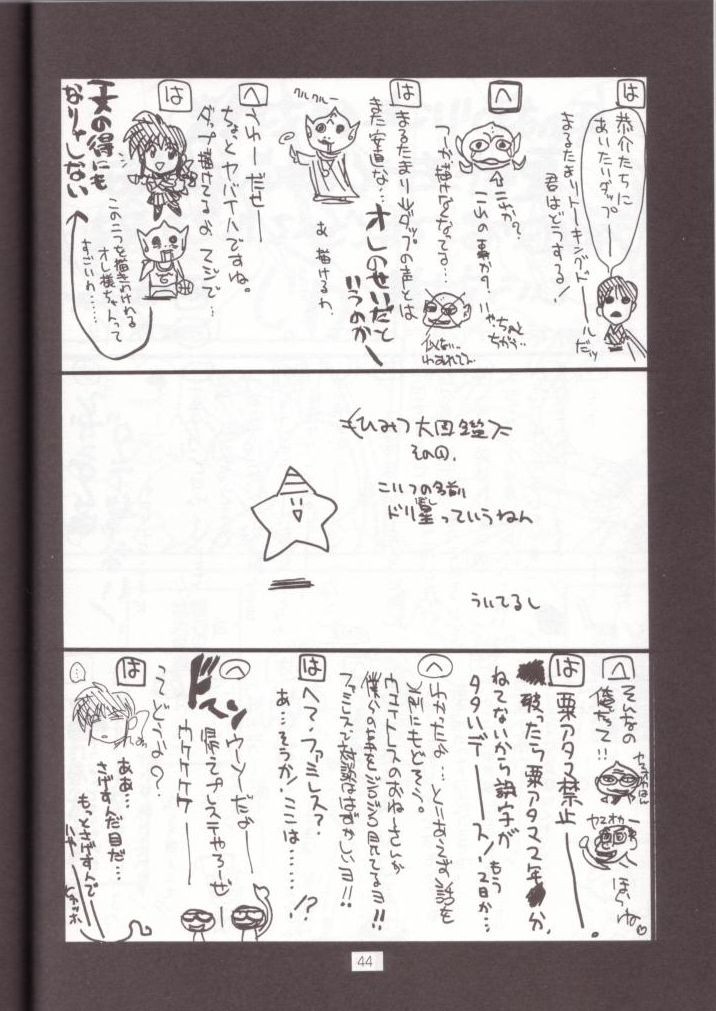 は
恭介たちに
あいたいダップ
まるたまリトーキングド――ルだッ
君はどうする!
へ
これか?
これの事か?
いや…ちゃんと
ちがぐ…
つーか描けなくなってる…
は
まるたまりψダップの声とは
また安直な…
オレのせいだと
いうのか――
クルクルー
あ、描けるわ
へ
うわーだせ――
ちょっとヤバイハですね。
ダップ描けてるよ マジで…
は
この二つを描きわけれる
オレ様ちゃんって
すごいわ……
一文の得にも
なりゃしない
ひみつ大図鑑
その1.
こいつの名前
ドリ星っていうねん
ほし
ういてるし
へ
そんなの
俺だって!!
ヤマオカ
ほらね♡
は
栗アタマ禁止――
破ったら栗アタマ2年か。
ねてないから誤字が
もう
タタいデ――スン。2日か…
へ
わかったよ…とにあえず話を
元にもどそう。
ウェイトレスのおねーさんが
僕らの事をジロジロ見てるヨ!!
ファミレスで被談ははずかしいヨ!!
は
へて、ファミレス?
あ…そうか!ここは……!?
へ
ウーソだよ――
帰ってプレステやろーぜ
ウケケケケ――
ドギューン
は
ってどうよな?
…
ああ…
さげすんだ目だ…
もっとさげすんで
ハヤ――
ヒャッホ
44